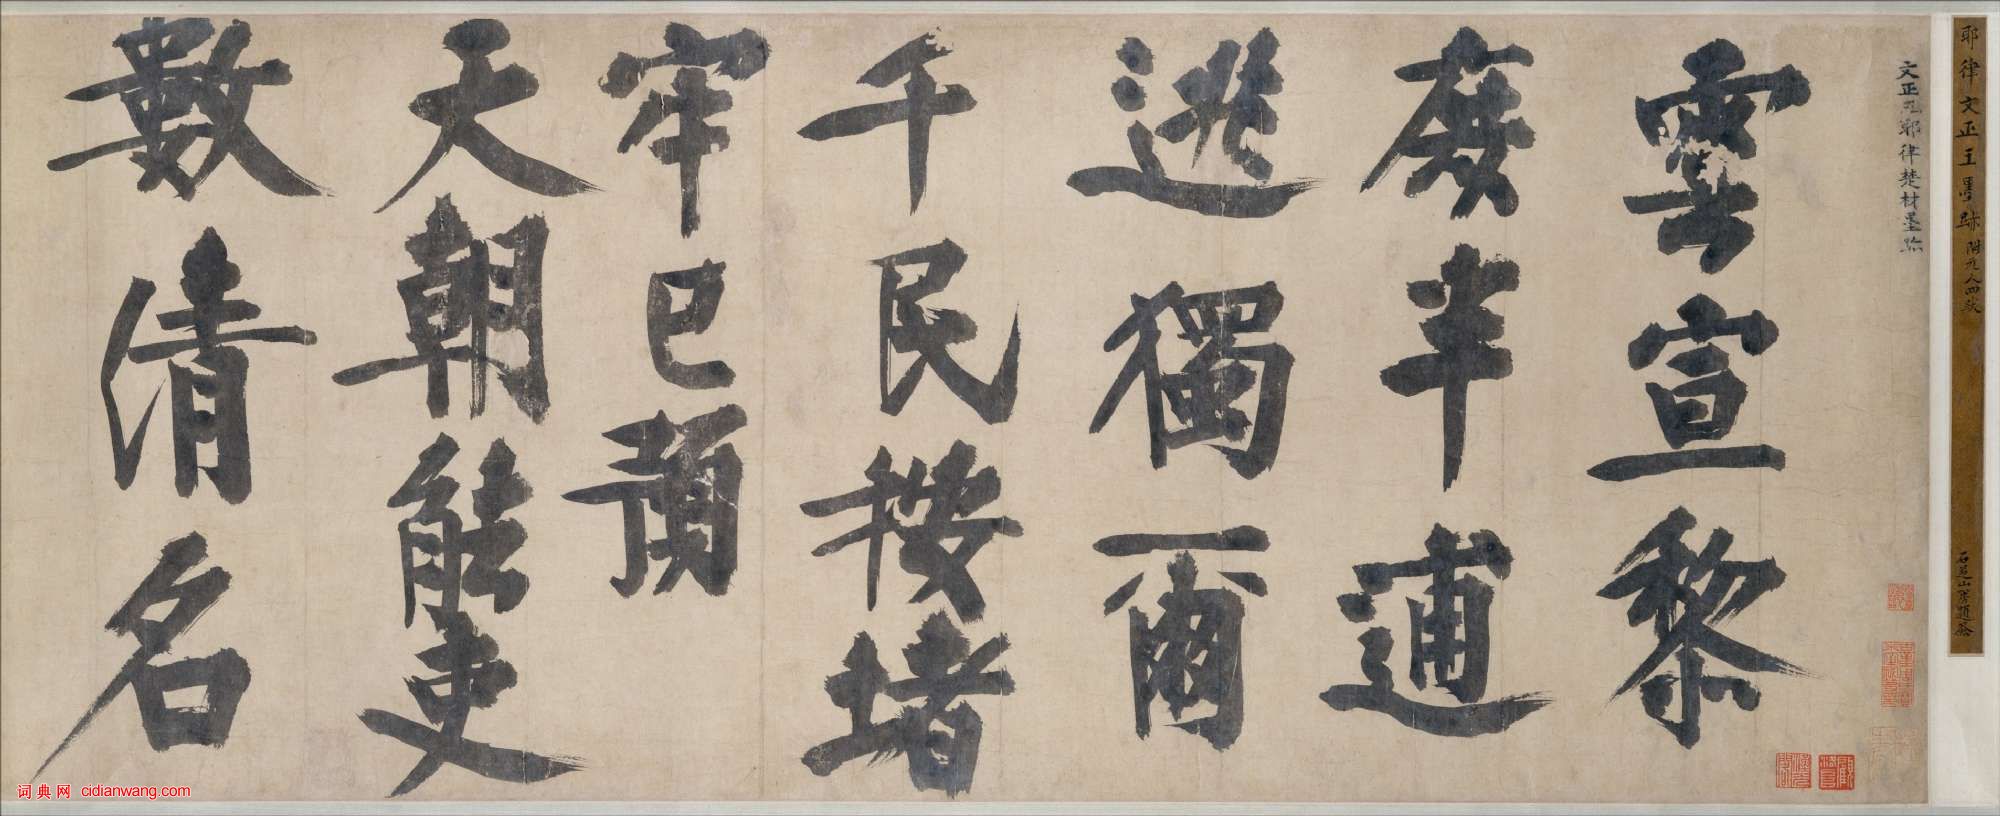 耶律文正王墨跡 附元人四跋
石芝山房題簽
文正耶律楚材墨跡
雲宣黎
庶半逋
逃獨爾
千民按堵
牢已預
天朝能吏
數清名
词典网 cidianwang.com